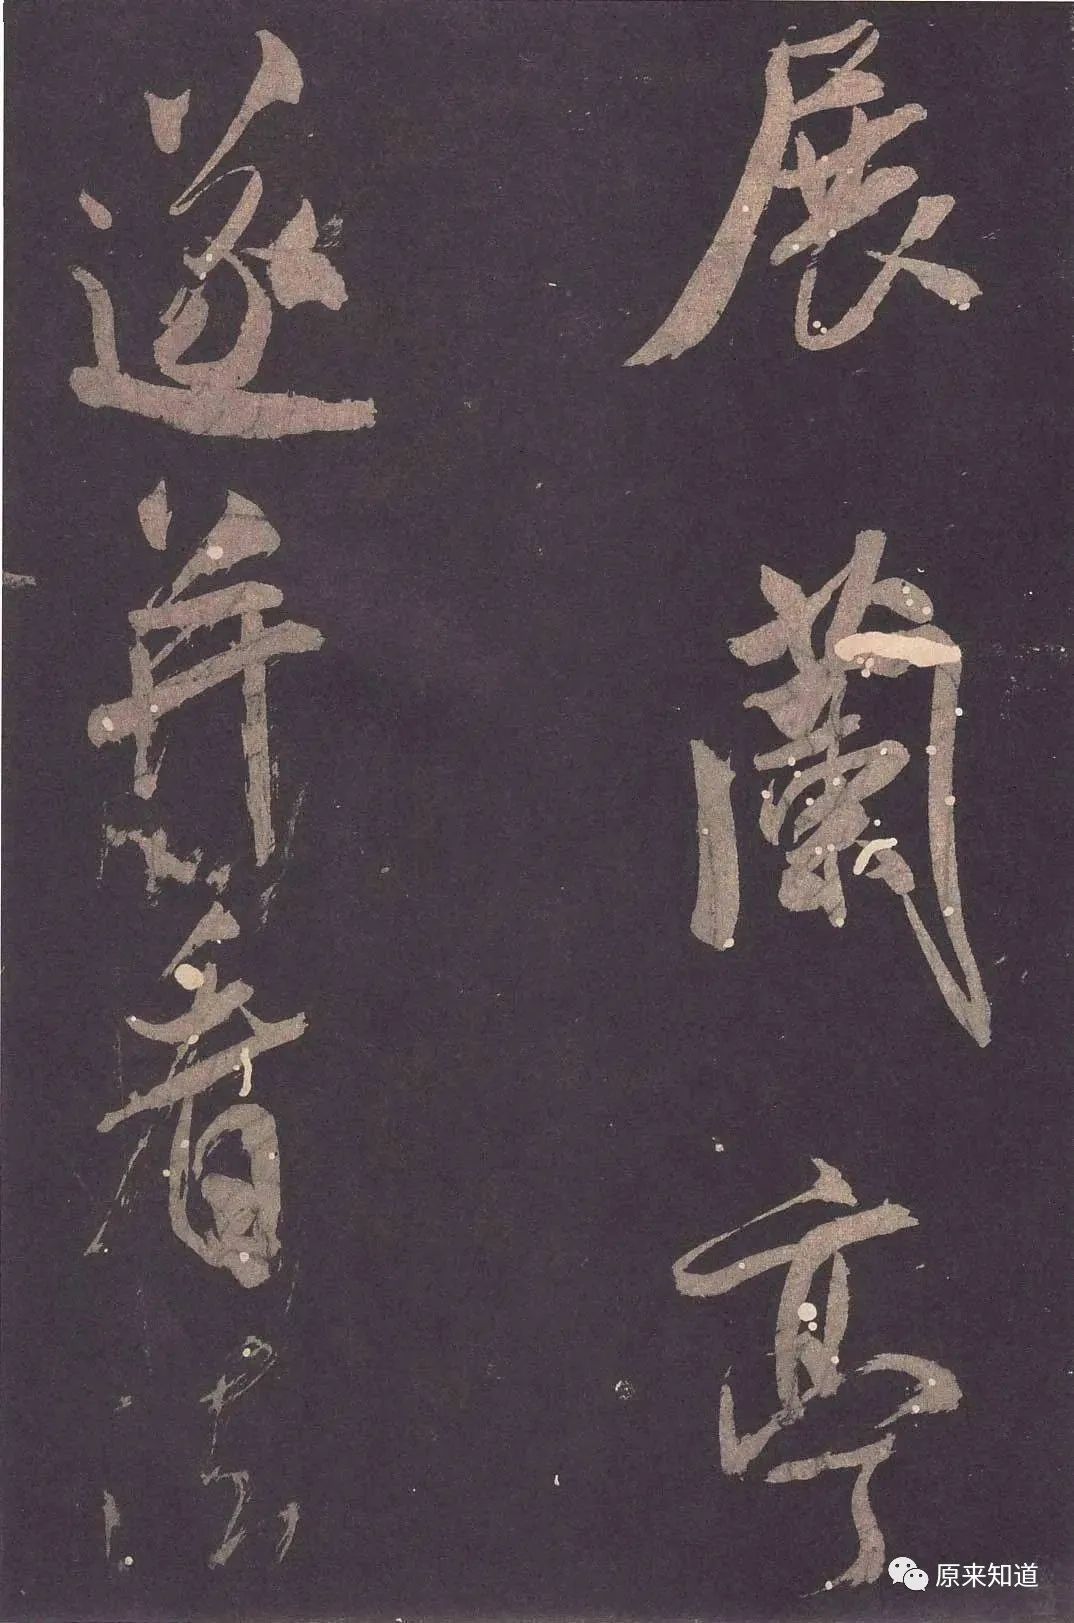 展蘭亭
遂并看法
原来知道